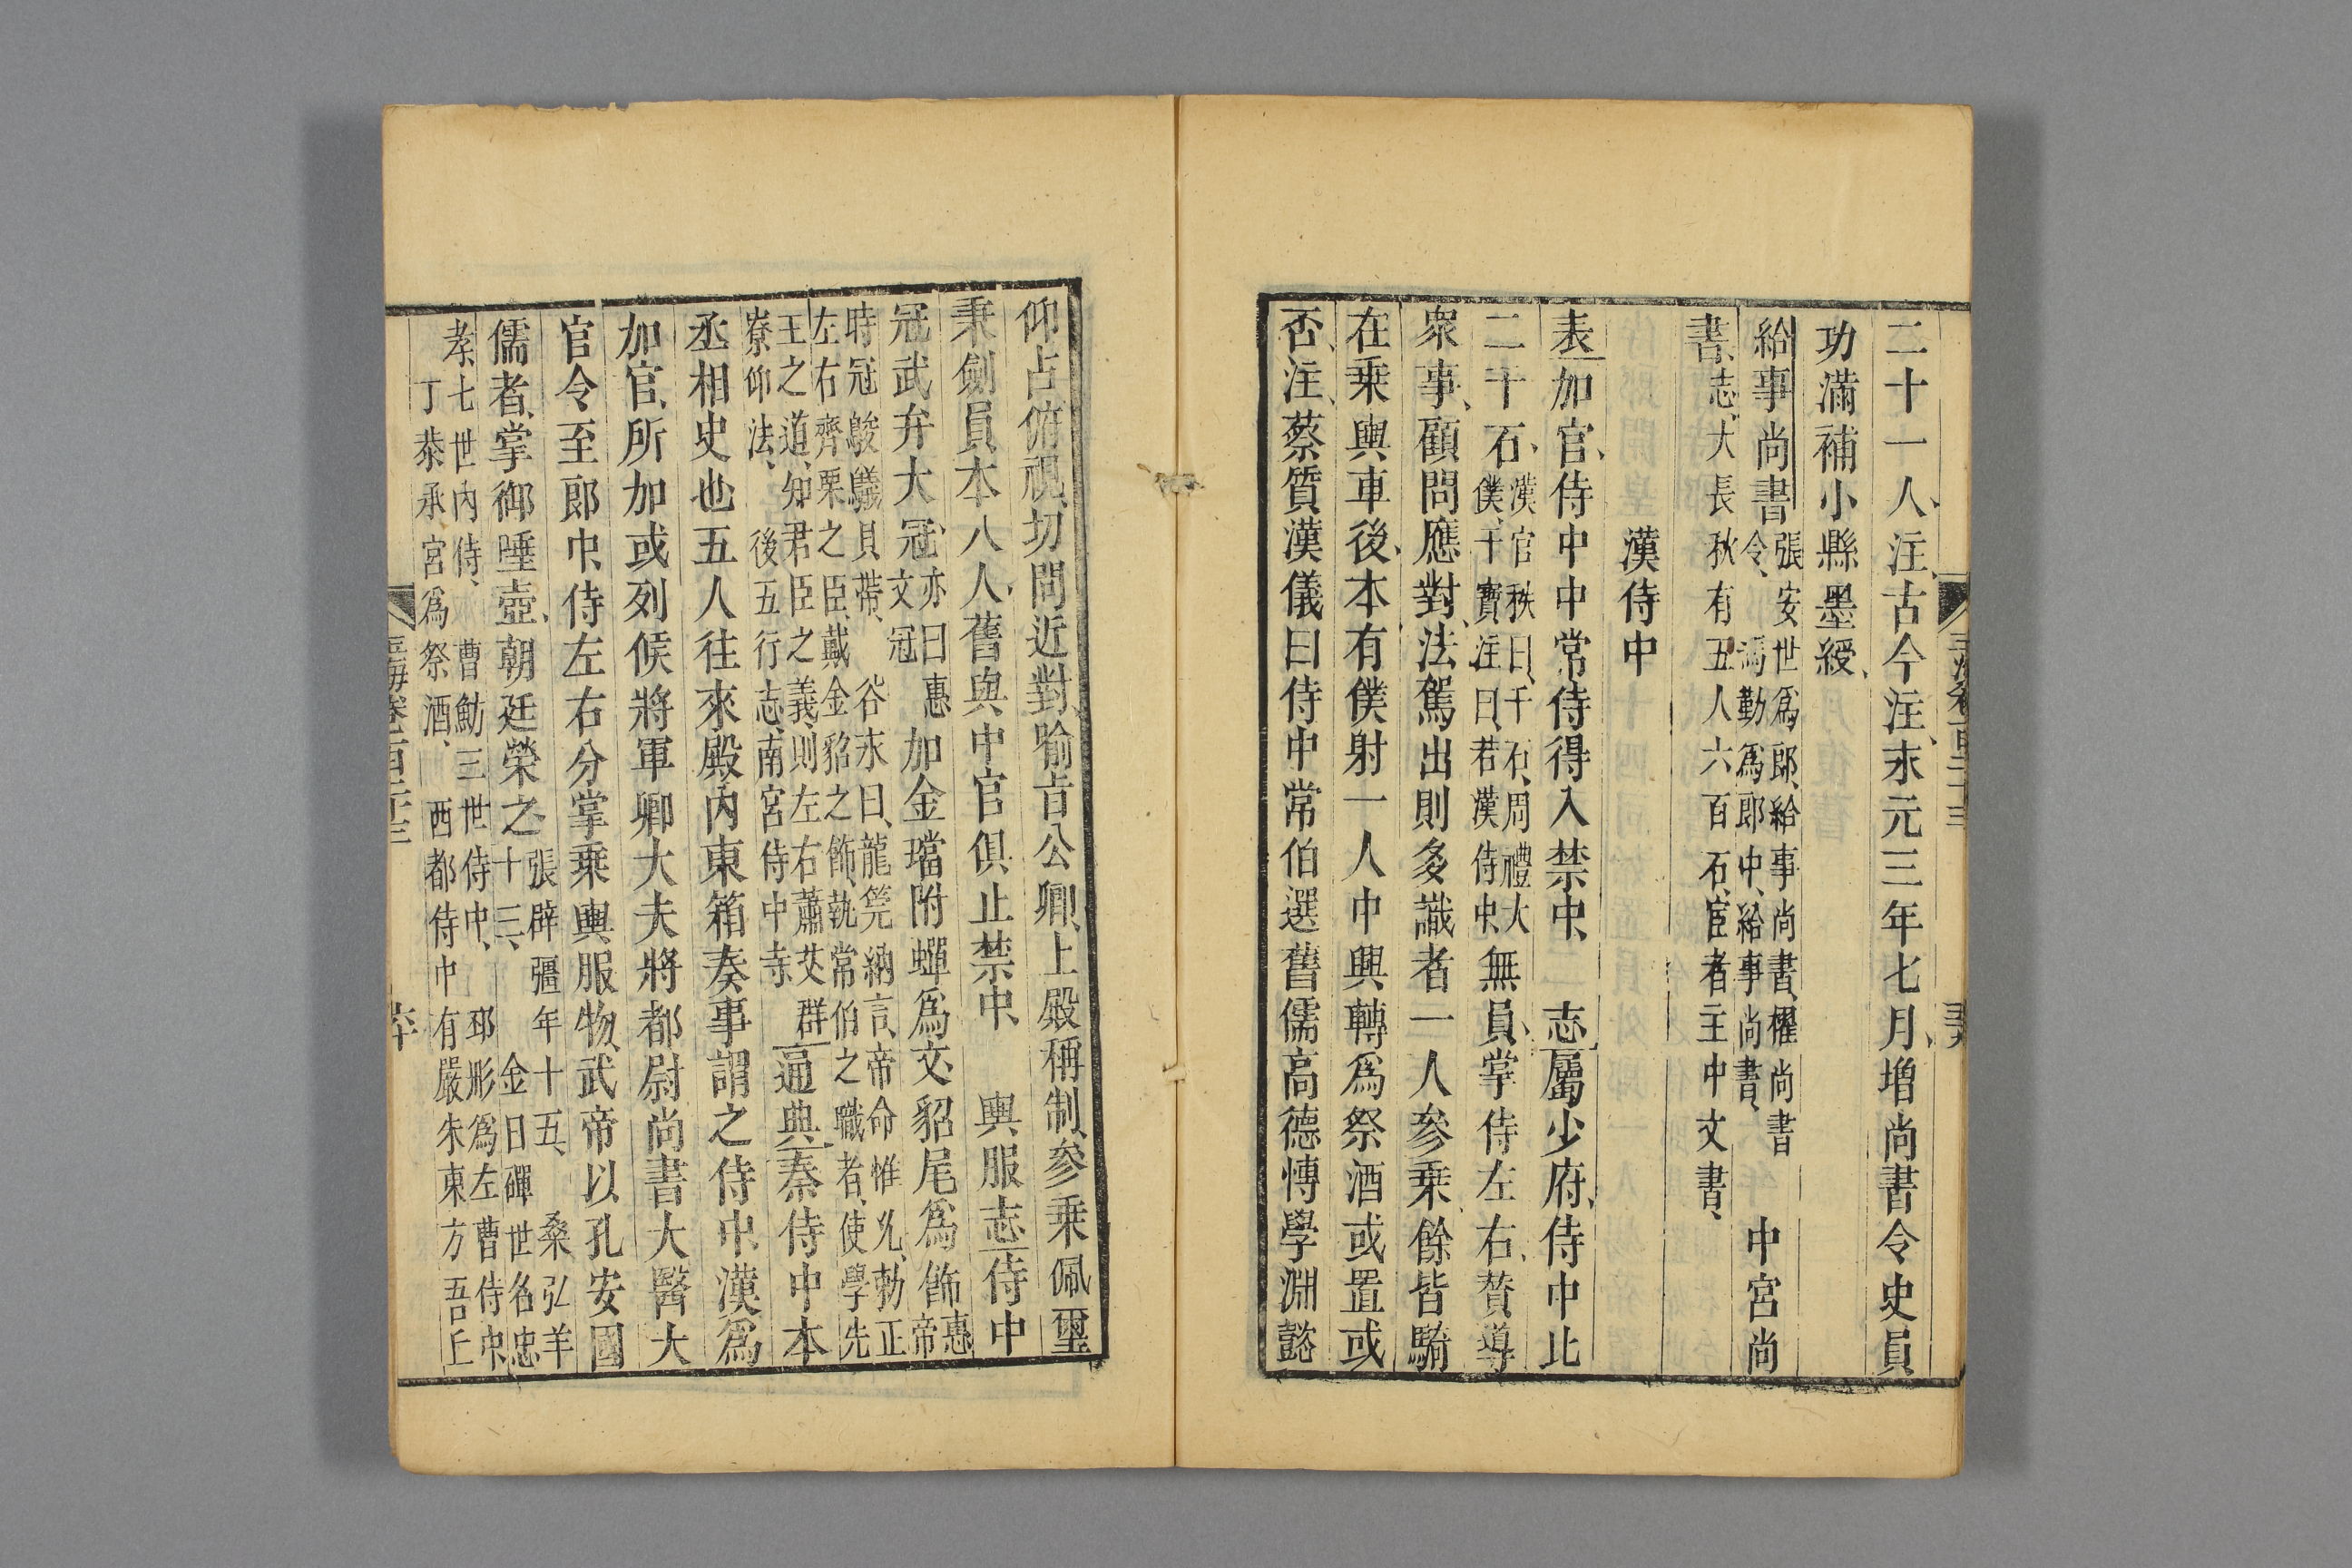 二十一人、注、古今注、永元三年七月、增尚書令史員
功滿補小縣墨綬、
給事尚書 張安世爲郎、給事尚書、擢尚書
令、馮勤爲郎中、給事尚書、 中宮尚
書、志、大長秋有五人六百石、宦者主中文書、
漢侍中
表加官、侍中中常侍得入禁中、 志屬少府、侍中比
二千石、漢官秩曰、千石、周禮大
僕、干寶注曰、若漢侍中、無員、掌侍左右、贊導
衆事、顧問應對、法駕出則多識者一人參乘、餘皆騎
在乘輿車後、本有僕射一人中興轉爲祭酒或置或
否、注、蔡質漢儀曰侍中常伯選舊儒高德愽學淵懿
仰占俯視、切問近對、喻旨公卿、上殿稱制、參乘佩璽
秉劍員本八人、舊與中官俱止禁中、 輿服志侍中
冠武弁大冠、亦曰惠
文冠 加金璫附蟬爲文、貂尾爲飾惠
帝
時冠鵔鸃貝帶、 谷永曰、龍筦納言、帝命惟允、勑正
左右齊栗之臣、戴金貂之飾、執常伯之職者、使學先
王之道、知君臣之義、則左右蕭艾 群
寮仰法、 後五行志、南宮侍中寺 通典秦侍中本
丞相史也五人往來殿內東箱奏事謂之侍中、漢爲
加官、所加或列侯將軍卿大夫將都尉尚書大醫大
官令至郎中、侍左右分掌乘輿服物、武帝以孔安國
儒者、掌御唾壺、朝廷榮之 張辟彊年十五、 桑弘羊
十三、 金日磾世名忠
孝、七世內侍、 曹魴三世侍中、 邳彤爲左曹侍中、
丁恭承宮爲祭酒、 西都侍中有嚴朱東方吾丘